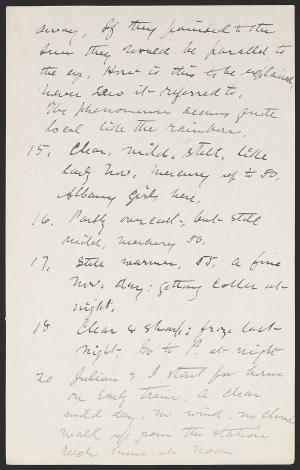 away, If they pointed to the
sun they would be parallel, to
the eye, How is this to be explained,
never saw it referred to.
The phenomenon seems quite
local like the rainbow.
15. Clear, mild, still, like
early Nov. mercury up to 50,
Albany girls here,
16. Partly overcast, but still
mild, mercury 50.
17. Still warmer, 55, a fine
Nov. day; getting colder at
night.
18 Clear & sharp; froze last
night. Go to P. at night
20 Julian & I start for home
on early train. A clear
mild day, no wind, no cloud
walk up from the station
reach home at noon